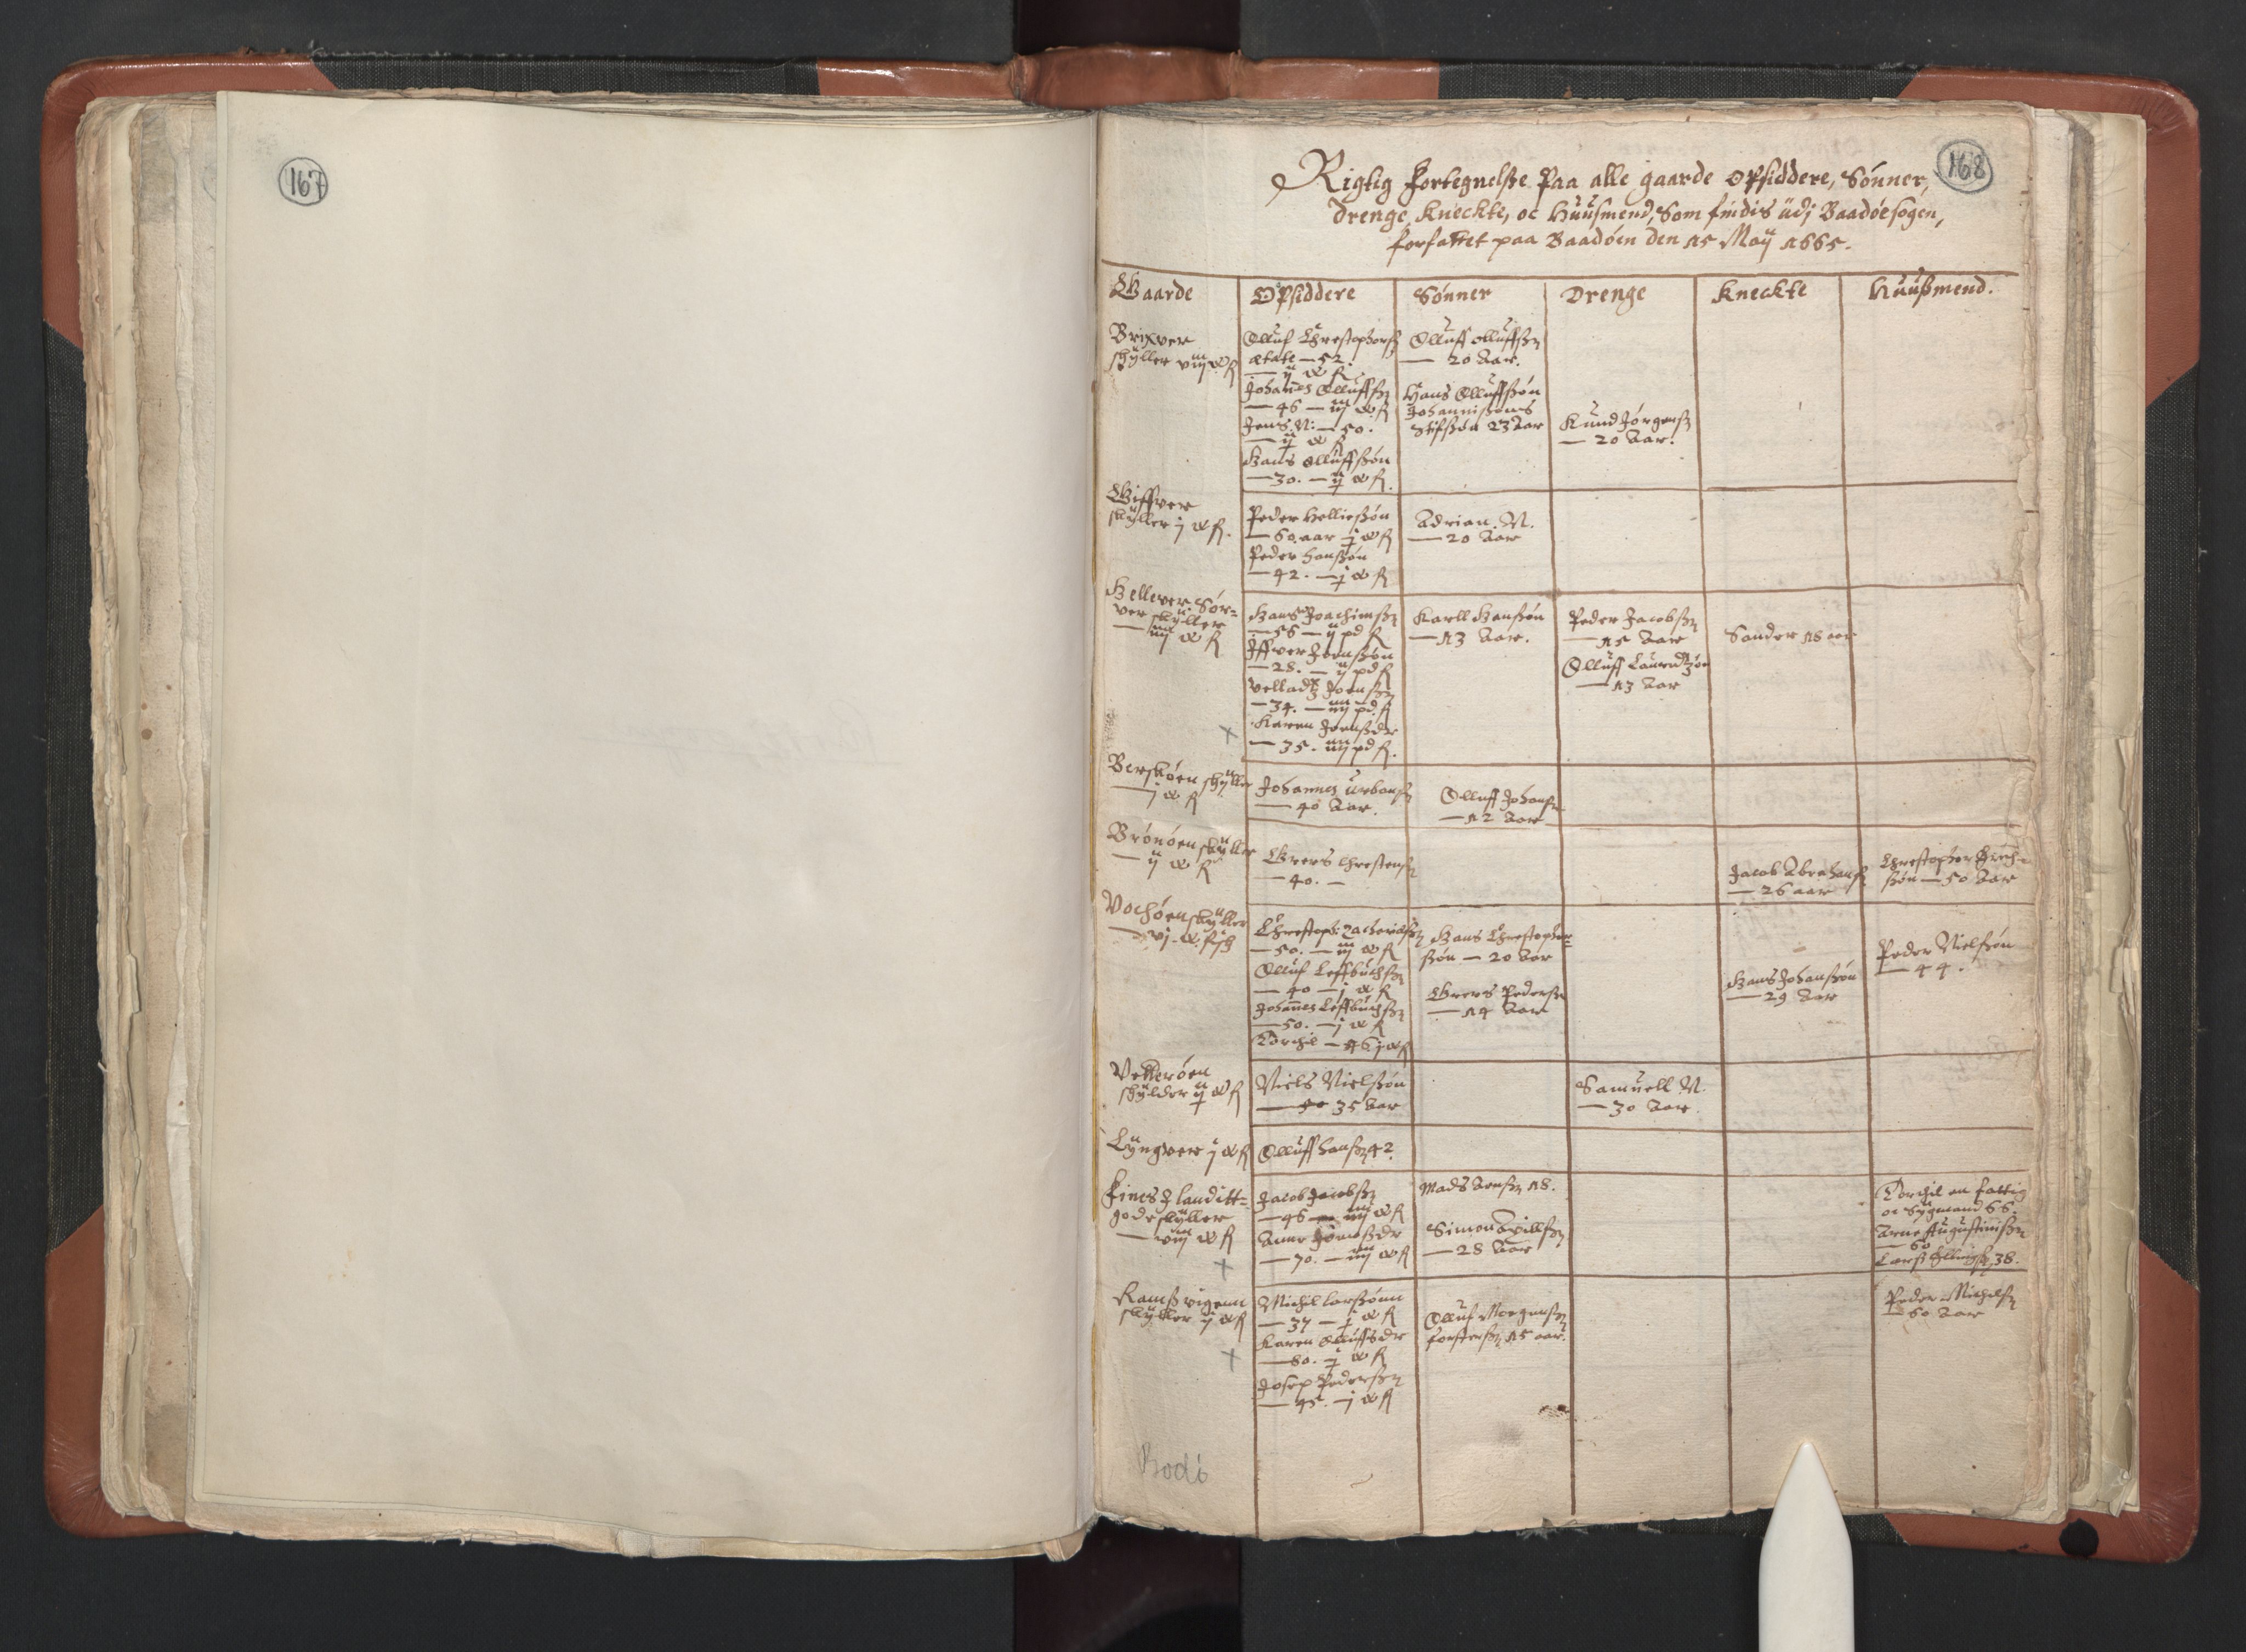 167
168
Rigtig Fortegnelsse Paa alle gaarde Opsiddere, Sønner,
Drenge Kneckte, oc Huusmend, Som findis udj Baadøesogen,
forfattet paa Baadøen den 15 Maij 1665.
Gaarde
Opsiddere
Sønner
Drenge
Kneckte
Huussmend.
Brixver
skyller viij w f
Olluf Chrestophers
ætate — 52.
— ij w f
Johannes Olluffss
— 46 — iij w f
Jens N: — 50.
— ij w f
Hans Olluffssøn
— 30. — ij w f.
Olluff olluffss
— 20 Aar.
Hans Olluffssøn
Johannissøns
Stifssøn 23 Aar
Knud Jørgenss
— 20 Aar.
Giffver
skyller ij w f.
Peder Helliessøn
— 60. aar j w f
Peder Hanssøn
— 42. — j w f
Adrian. N.
— 20 Aar
Hellever. Sør=
ver skyller
— iiij w f
Hans Joachimss
— 56 — ij pd f
Iffver Jenssøn
— 28. — ij pd f
Velladtz Joenss
— 34. — iiij pd. f
Karen Jenssdr
— 35. iiij pd f.
Karll Hanssøn
— 13 Aar.
Peder Jacobss
— 15 Aar
Olluff Lauridtzøn
— 13 Aar
Sander 18 aar
Berskøen skyller
— j w f
Johannes urbanss
— 40 Aar.
Olluff Johanss
— 12 Aar
Brønøen skyller
— ij w f
Grers Chrestenss
— 40. —
Jacob Abrahamss
— 26 aar
Chrestopher
ssøn — 50 Aar
Vochøen skyller
— vj w.
Christoph: Zachariess
— 50. — iij w f
Olluf Leffbuchss
— 40 — j w f
Johannes Leffbuchss
— 50. — j w f
Torchil — 46 j w f
Hans Chrestopher=
ssøn — 20 Aar
Grers Pederss
— 14 Aar
Hans Johanssøn
— 29 Aar
Peder Nielssøn
— 44.
Vetterøen
skylder ij w f
Niels Nielssøn
— 35 Aar
Samuell N.
— 30 Aar.
Lyngver j w f
Olluff hanss 42
Fines I landitt=
gods skyller
— viij w f
Jacob Jacobss
— 46 — iiij w f
Anne Jonssdr
— 70. — iiij w f
Mads Arnss 18.
Simon
— 28 Aar
Torchil en fattig
oc Sygmand 66.
Arne Augustiniss
— 60
Larss 38.
Ramss vigenn
skyller ij w f
Michil Larssønn
— 37 — j w f
Karen Olluffsdr
— 60. j w f
Josep Pederss
— 45. — j w f
Olluf Mogenss
forsterss 15 aar.
Peder Michelss
— 60 Aar
Bodö